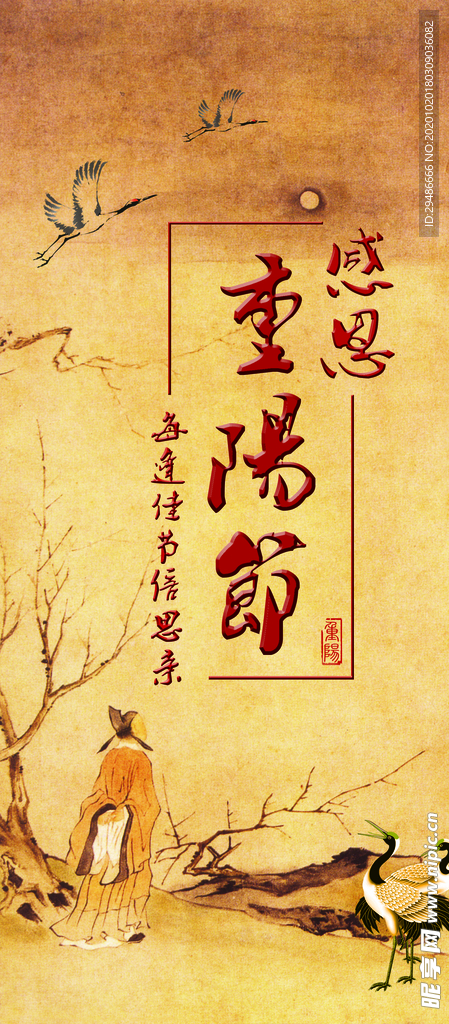 感恩
重陽節
每逢佳节倍思亲
重陽
ID:29486666 NO:20201020180309036082
昵享网 www.nipic.cn